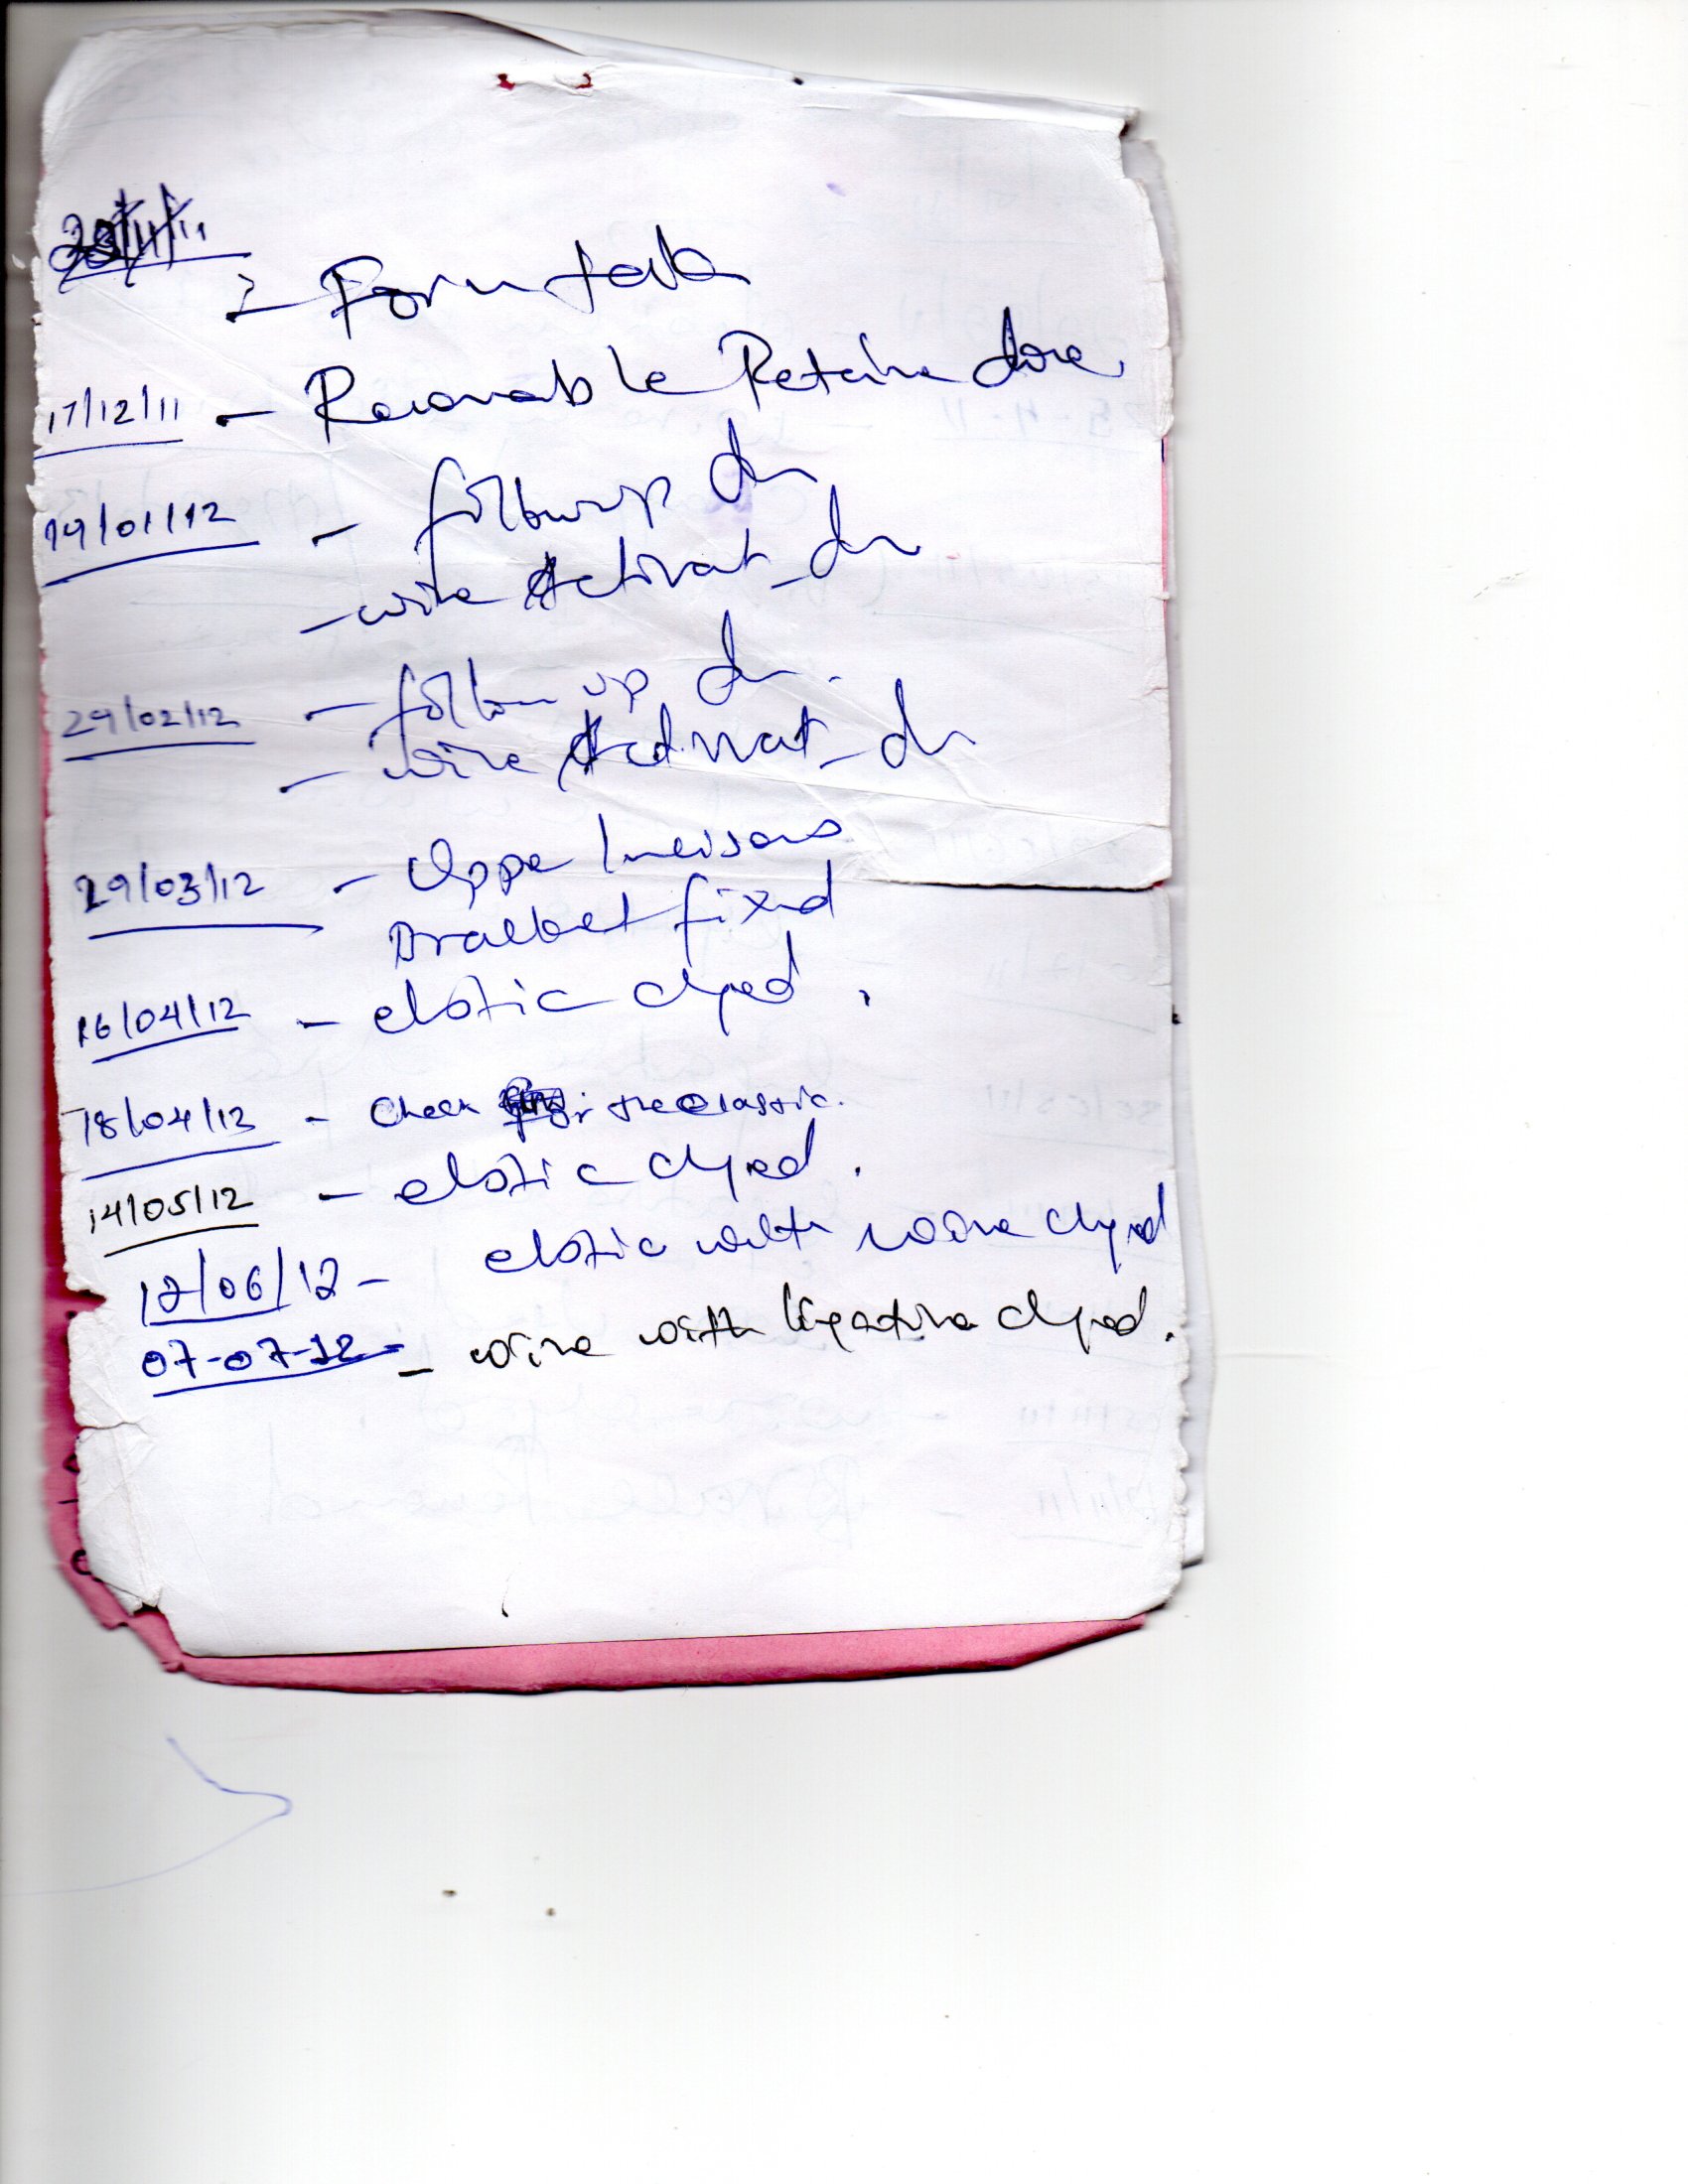 28/11/11
17/12/11 - Removable Retainer done
19/01/12 - followup dn
- wire Activat dn
29/02/12 - follow up dn.
- wire Activat dn
29/03/12 - Upper Incisors
Bracket fixed
16/04/12 - elastic chged.
18/04/12 - Check for the elastic.
14/05/12 - elastic chged.
12/06/12 - elastic with wire chged
07-07-12 - wire with ligature chged.